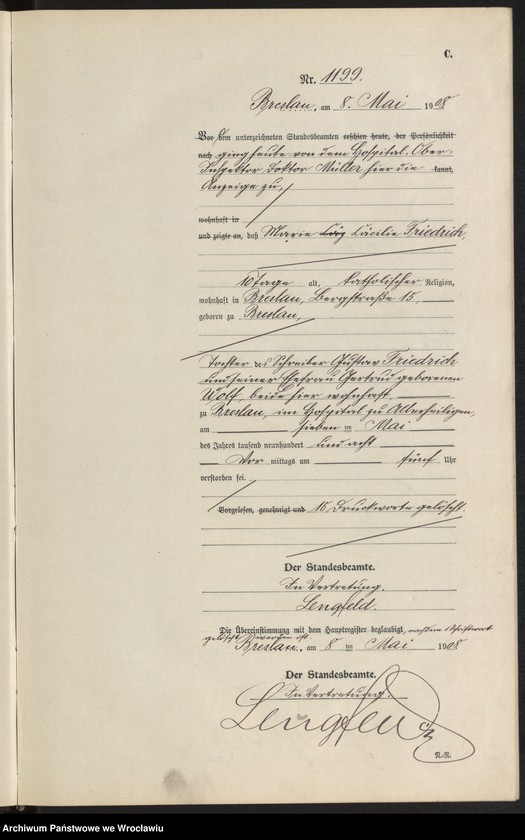 C.
Nr. 1199.
Breslau, am 8. Mai 1908
Vor dem unterzeichneten Standesbeamten erschien heute, der Persönlichkeit
nach ging heute von dem Hospital-Ober-
Inspektor Doktor Müller hier die kannt,
Anzeige zu,
wohnhaft in
und zeigte an, daß Marie Cäcilie Friedrich,
10 Tage alt, katholischer Religion,
wohnhaft in Breslau, Bergstraße 15,
geboren zu Breslau,
Tochter des Schreiber Gustav Friedrich
und seiner Ehefrau Gertrud geborenen
Wolf, beide hier wohnhaft
zu Breslau, im Hospital zu Allerheiligen,
am sieben ten Mai
des Jahres tausend neunhundert und acht
Vor mittags um fünf Uhr
verstorben sei.
Vorgelesen, genehmigt und 15 Druckworte gelöscht.
Der Standesbeamte.
In Vertretung.
Lengfeld.
Die Übereinstimmung mit dem Hauptregister beglaubigt, nachdem 1 Schriftwort
gelöscht worden ist.
Breslau, am 8 ten Mai 1908
Der Standesbeamte.
In Vertretung.
Lengfeld
Archiwum Państwowe we Wrocławiu